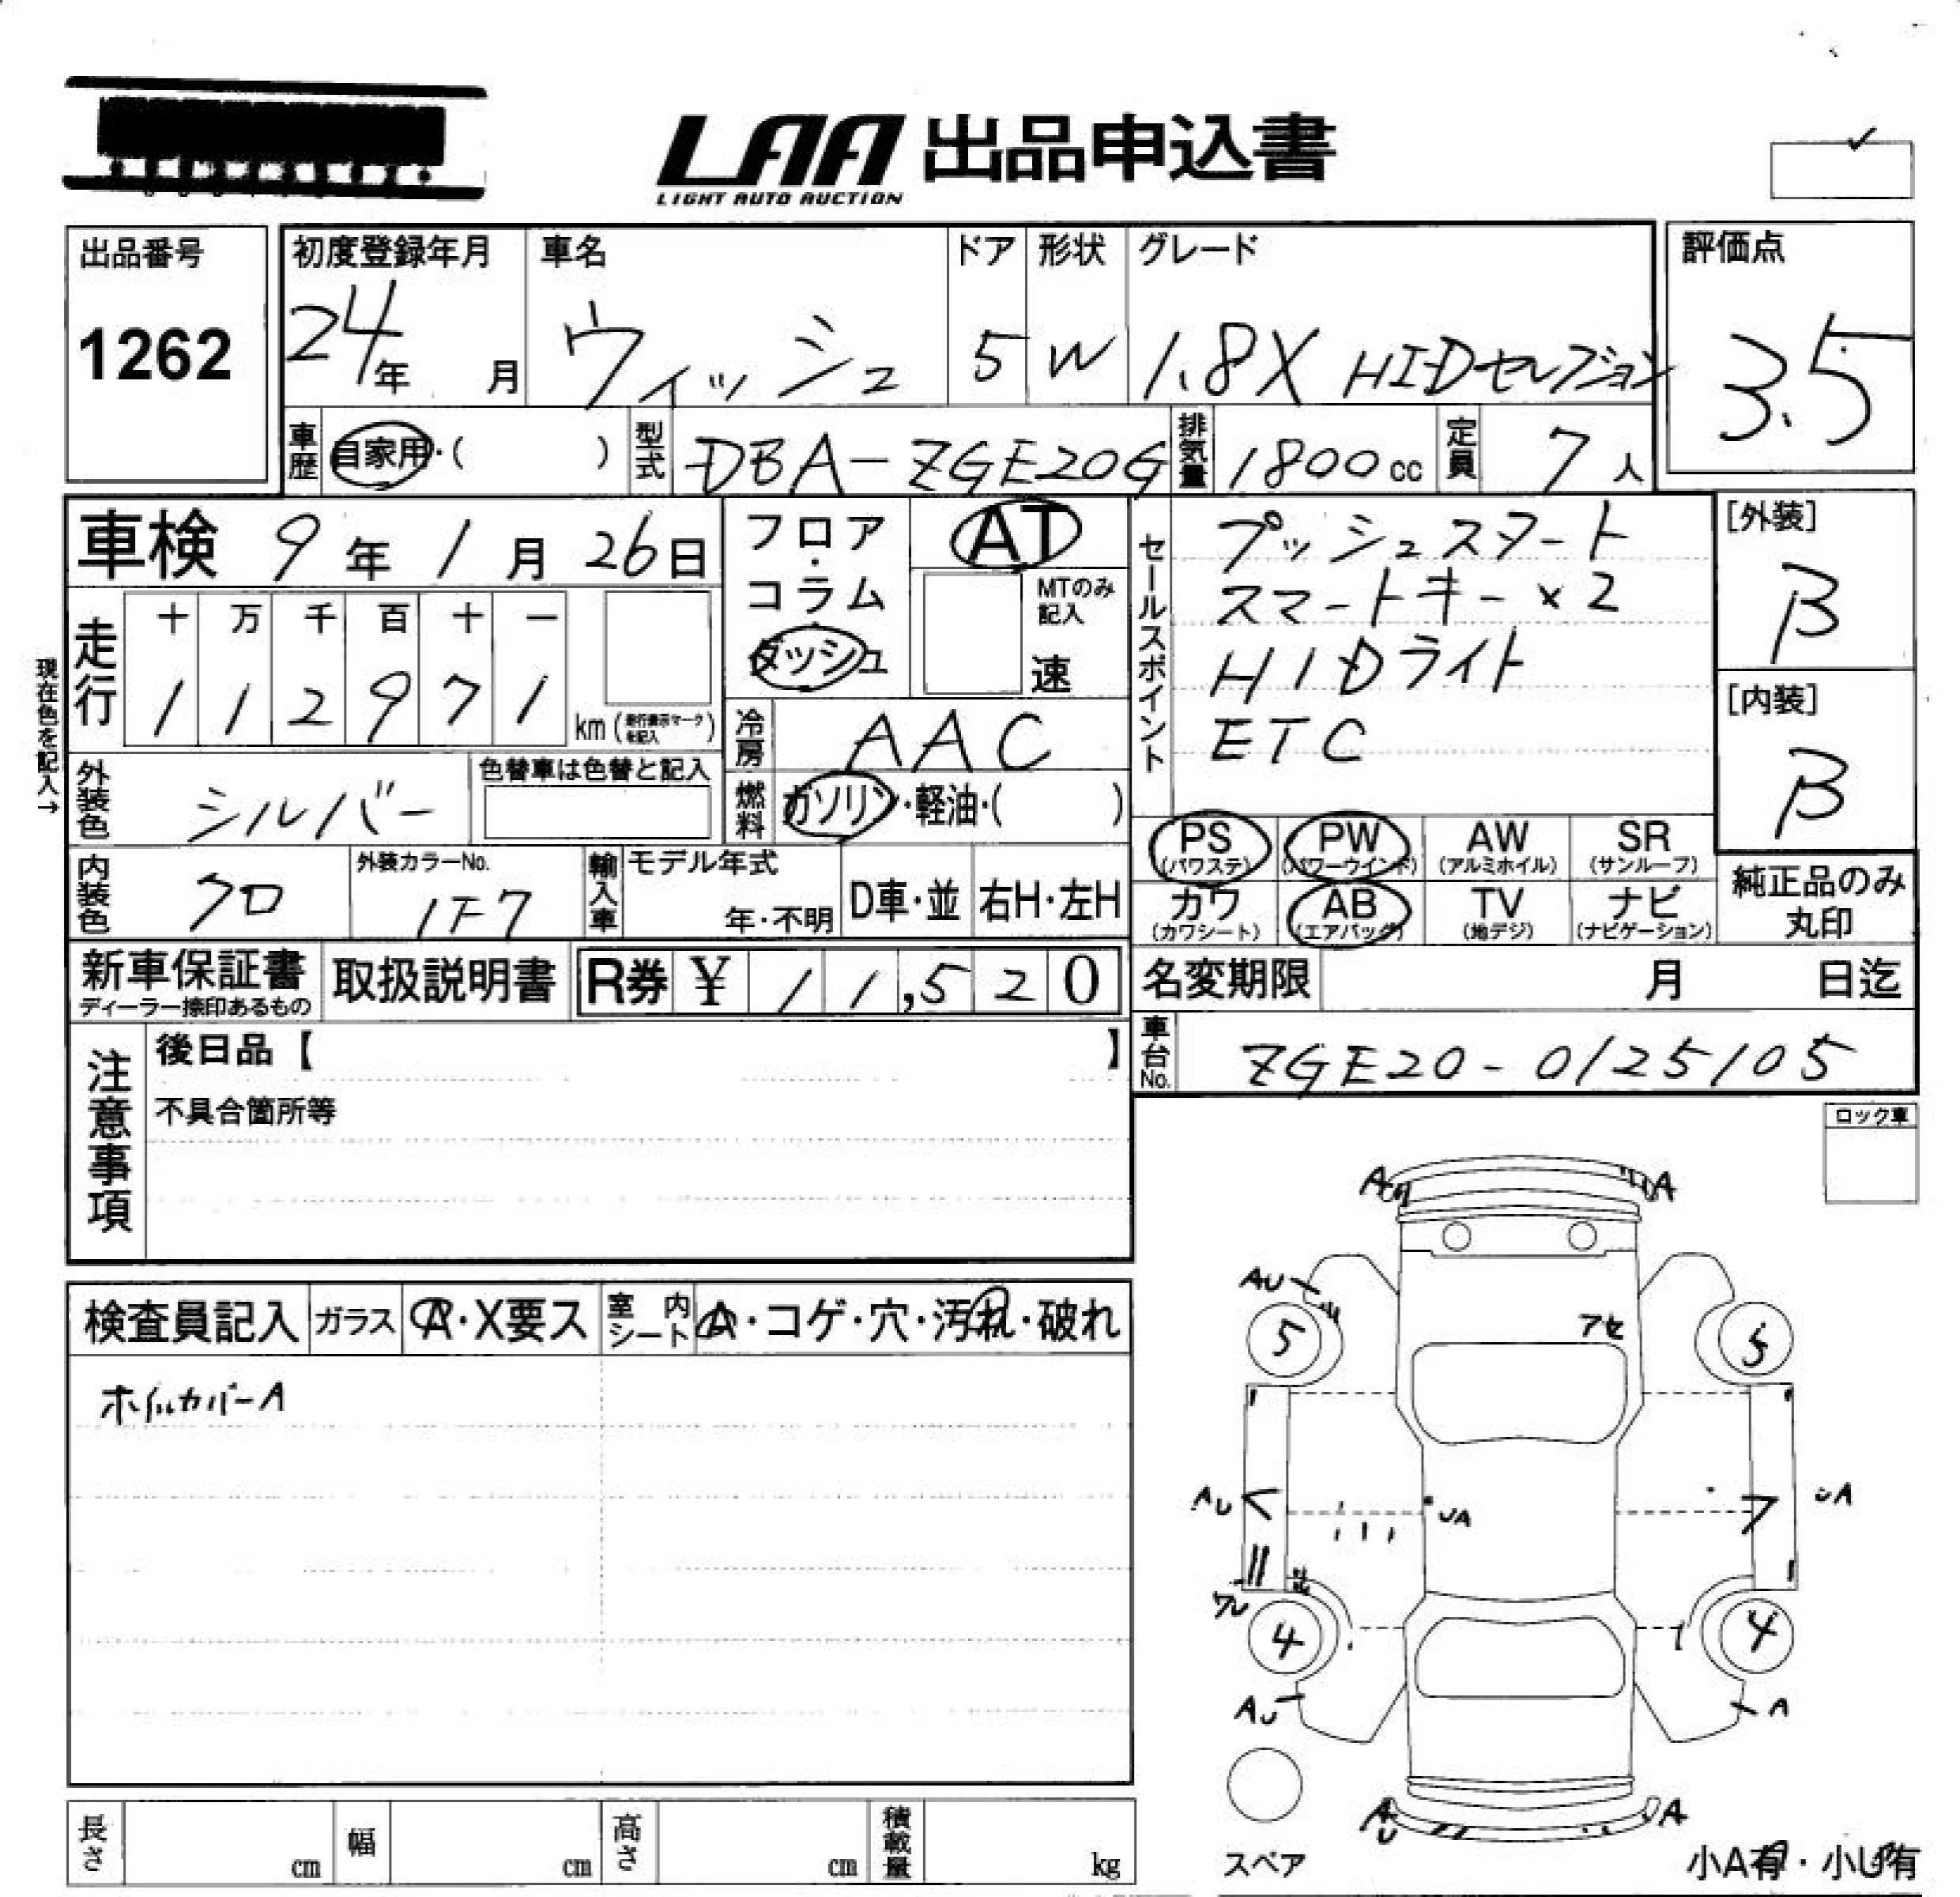 LAA 出品申込書
LIGHT AUTO AUCTION
出品番号
1262
初度登録年月
24年 月
車名
ウィッシュ
ドア
5
形状
W
グレード
1.8X HIDセレクション
評価点
3.5
車歴 自家用・( )
型式 DBA-ZGE20G
排気量 1800cc
定員 7人
車検 9年1月26日
現在色を記入→
走行
十 万 千 百 十 一
1 1 2 9 7 1
km (走行表示マークを記入)
フロア・コラム
ダッシュ
AT
MTのみ記入
速
冷房 AAC
燃料 ガソリン・軽油・( )
外装色 シルバー
色替車は色替と記入
内装色 クロ
外装カラーNo.
1F7
輸入車
モデル年式
年・不明
D車・並
右H・左H
セールスポイント
プッシュスタート
スマートキー×2
HIDライト
ETC
[外装]
B
[内装]
B
PS (パワステ)
PW (パワーウインド)
AW (アルミホイル)
SR (サンルーフ)
カワ (カワシート)
AB (エアバッグ)
TV (地デジ)
ナビ (ナビゲーション)
純正品のみ丸印
新車保証書
ディーラー捺印あるもの
取扱説明書
R券 ¥ 11,520
名変期限 月 日迄
車台No. ZGE20-0125105
注意事項
後日品【 】
不具合箇所等
ロック車
検査員記入
ガラス A・X要ス
室内シート A・コゲ・穴・汚れ・破れ
ホイルカバーA
A
A
AU
アセ
5
5
AU
UA
UA
ワレ
4
4
AU
A
AU
A
スペア
小A有・小U有
長さ cm
幅 cm
高さ cm
積載量 kg